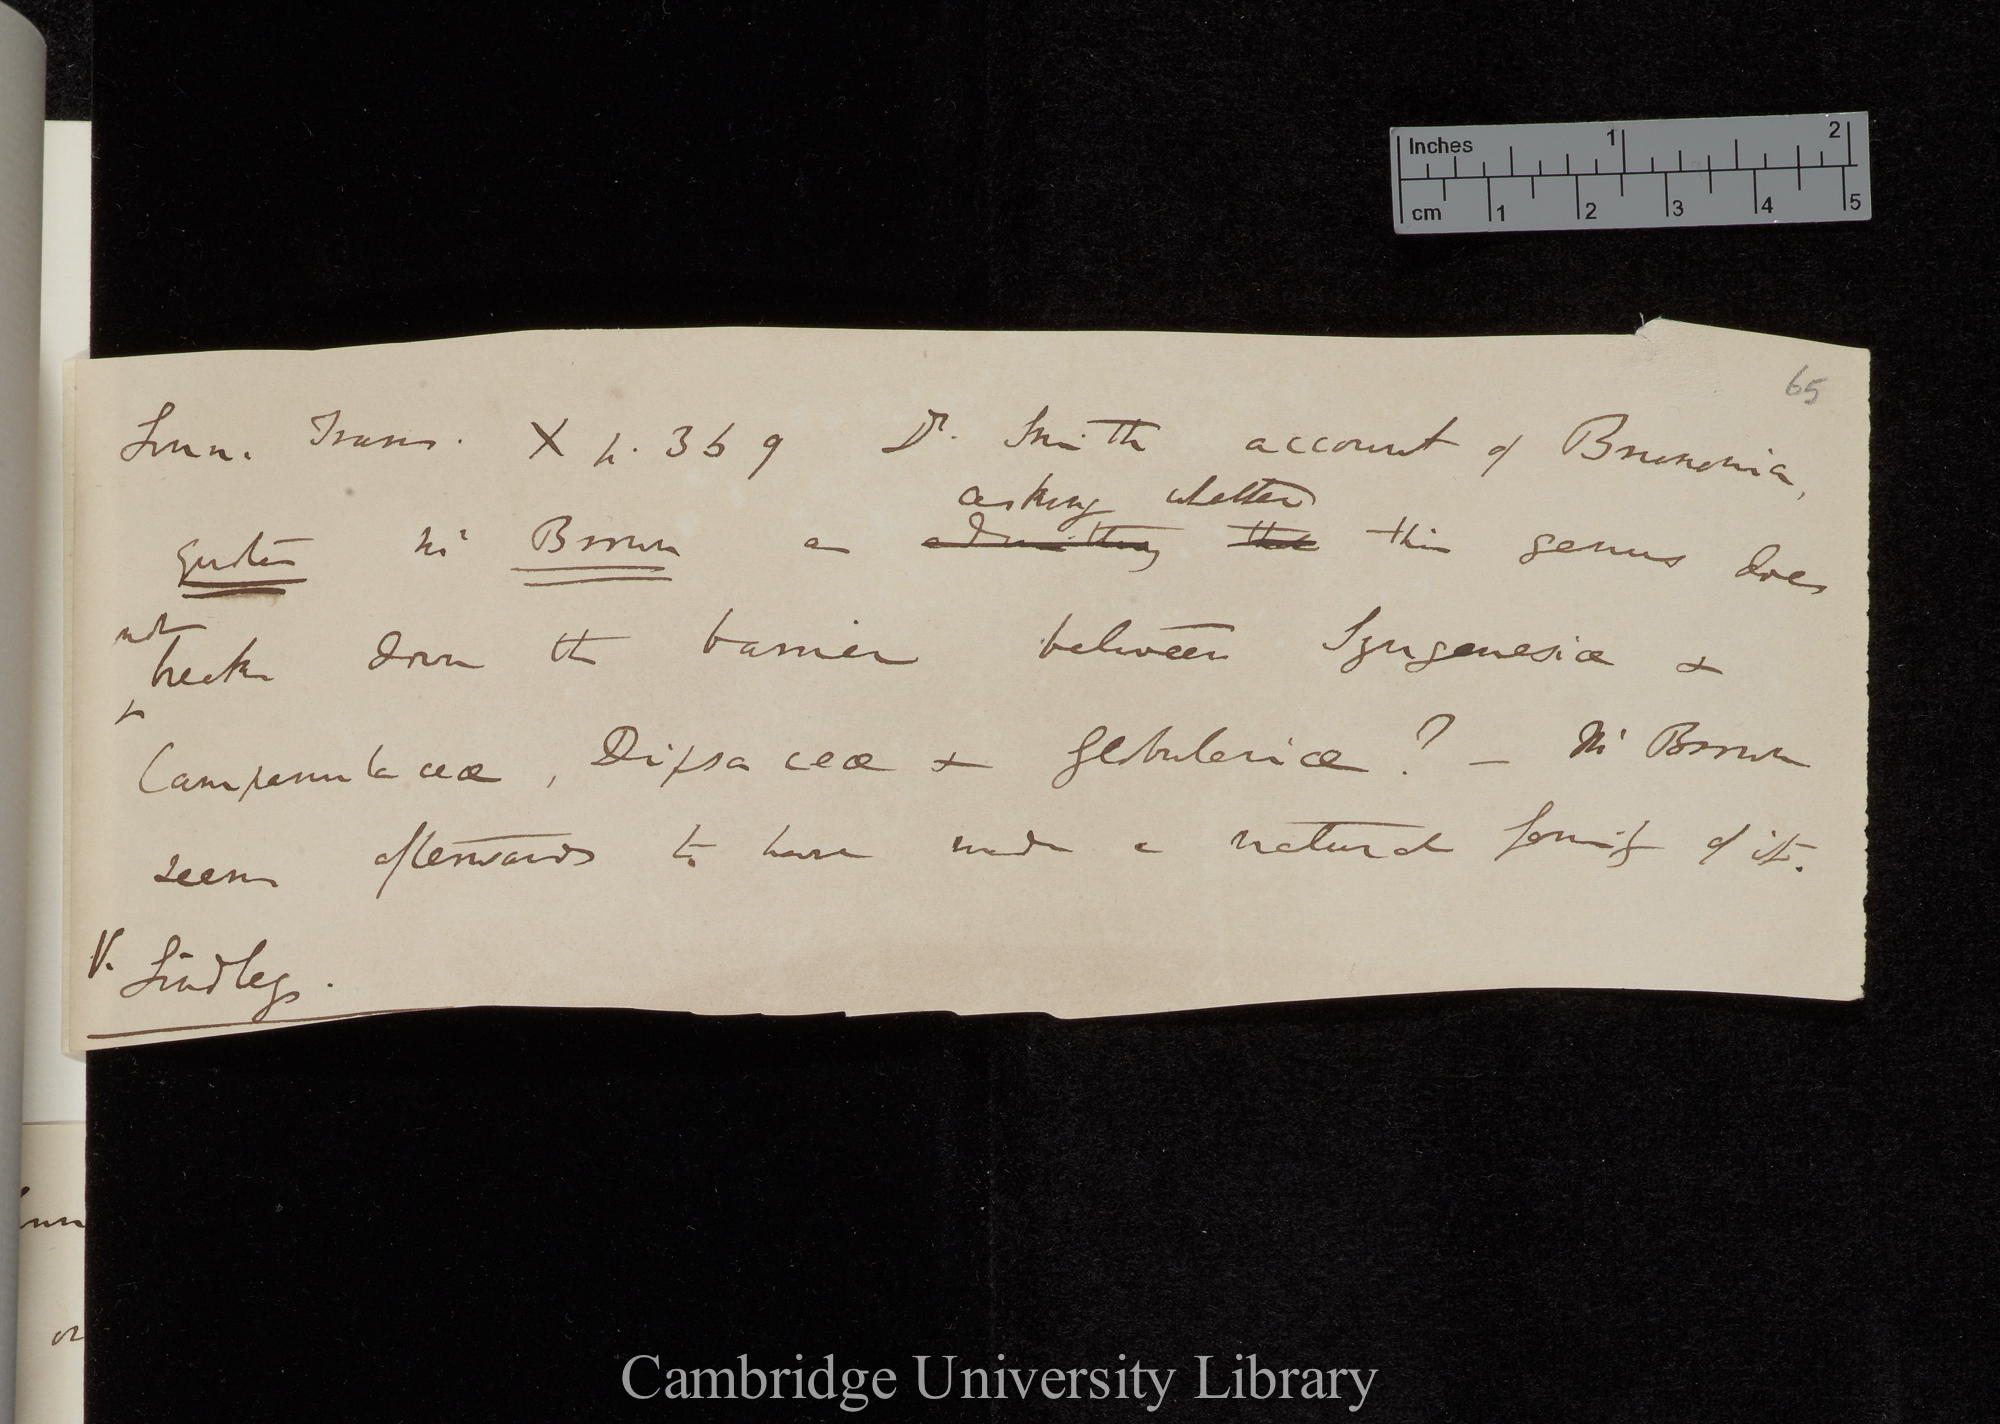 65
Linn. Trans. X p. 369 Dr. Smith account of Brunonia,
asking whether
quotes Mr Brown as admitting that this genus does
not
break down the barrier between Syngenesiæ &
Campanulaceæ, Dipsaceæ & Globulariæ? — Mr Brown
seems afterwards to have made a natural family of it.
V. Lindley.
Inches 1 2
cm 1 2 3 4 5
Cambridge University Library